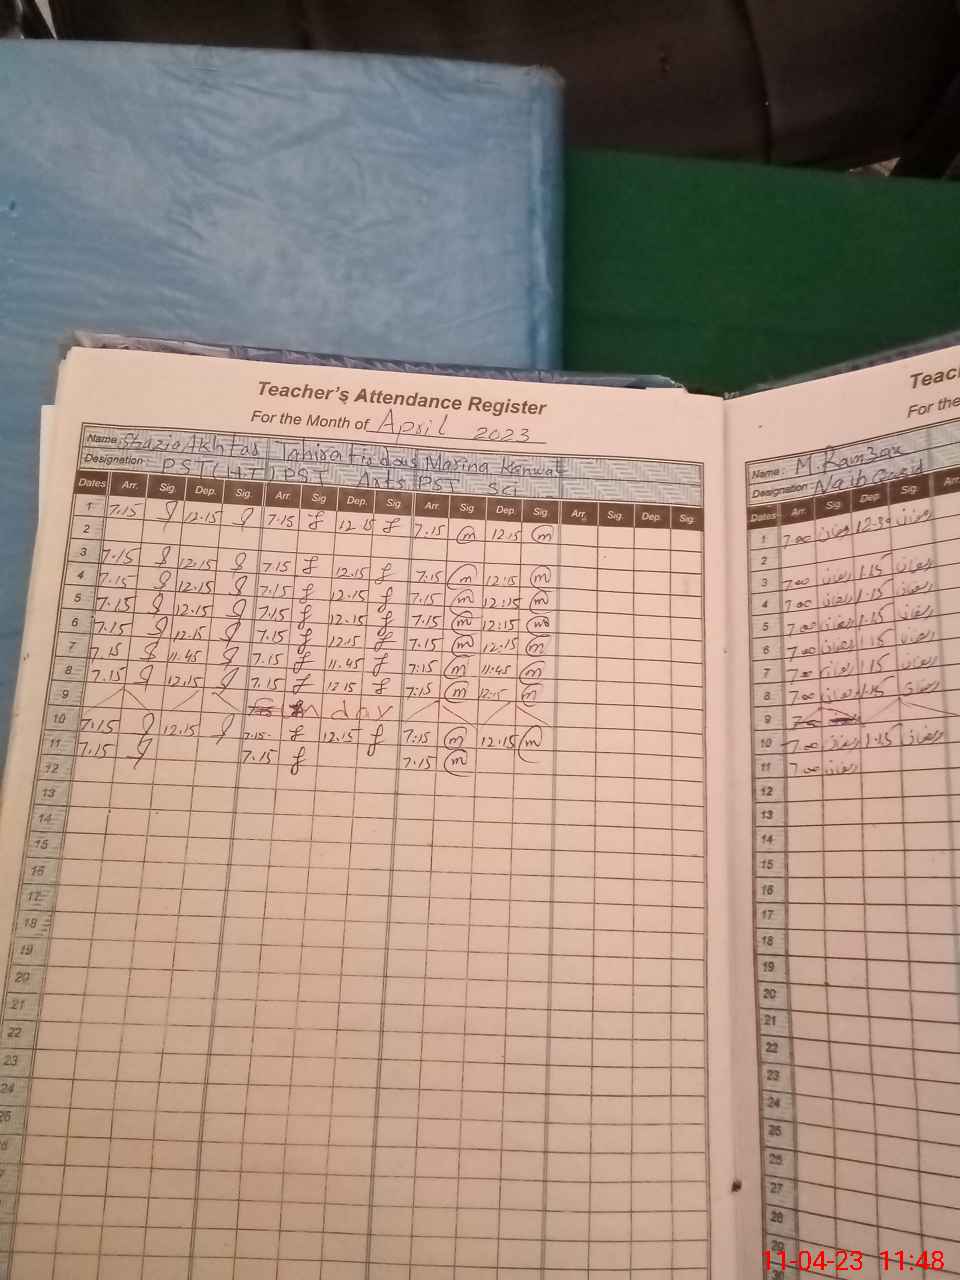 Teacher's Attendance Register
For the Month of April 2023
Name Shazia Akhtar Tahira Firdous Marina Kanwal
Designation: PST(HT) PST Arts PST Sci
Dates Arr. Sig. Dep. Sig. Arr. Sig Dep. Sig. Arr. Sig. Dep. Sig. Arr. Sig. Dep. Sig.
1 7.15 12.15 7.15 f 12.15 f 7.15 m 12.15 m
2
3 7.15 12.15 7.15 f 12.15 f 7.15 m 12:15 m
4 7.15 12.15 7.15 f 12.15 f 7.15 m 12:15 m
5 7.15 12.15 7.15 f 12.15 f 7.15 m 12:15 m
6 7.15 12.15 7.15 f 12.15 f 7.15 m 12:15 m
7 7.15 11.45 7.15 f 11.45 f 7:15 m 11:45 m
8 7.15 12.15 7.15 f 12.15 f 7:15 m 12:15 m
9
10 7.15 12.15 7.15 f 12.15 f 7:15 m 12.15 m
11 7.15 7.15 f 7.15 m
12
13
14
15
16
17
18
19
20
21
22
23
24
Teac
For the
Name: M Ramzan
Designation: Naib Qasid
Dates Arr. Sig. Dep. Sig. Arr
1 7.00 رمضان 12.30 رمضان
2
3 7.00 رمضان 1.15 رمضان
4 7.00 رمضان 1.15 رمضان
5 7.00 رمضان 1.15 رمضان
6 7.00 رمضان 1.15 رمضان
7 7.00 رمضان 1.15 رمضان
8 7.00 رمضان 1.15 رمضان
9
10 7.00 رمضان 1.15 رمضان
11 7.00 رمضان
12
13
14
15
16
17
18
19
20
21
22
23
24
25
26
27
28
29
11-04-23 11:48